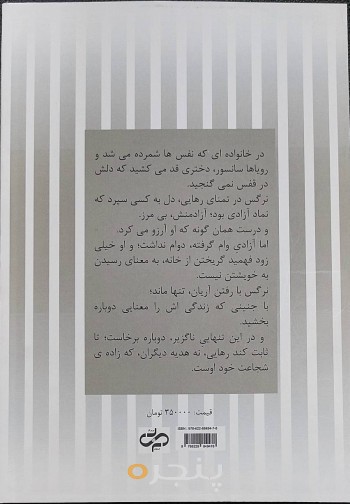 در خانواده ای که نفس ها شمرده می شد و
رویاها سانسور، دختری قد می کشید که دلش
در قفس نمی گنجید.
نرگس در تمنای رهایی، دل به کسی سپرد که
نماد آزادی بود؛ آزادمنش، بی مرز.
و درست همان گونه که او آرزو می کرد.
اما آزادی وام گرفته، دوام نداشت؛ و او خیلی
زود فهمید گریختن از خانه، به معنای رسیدن
به خویشتن نیست.
نرگس با رفتن آریان، تنها ماند؛
با جنینی که زندگی اش را معنایی دوباره
بخشید.
و در این تنهایی ناگزیر، دوباره برخاست؛ تا
ثابت کند رهایی، نه هدیه دیگران، که زاده ی
شجاعت خود اوست.
قیمت: ۳۵۰۰۰۰ تومان
پنجره